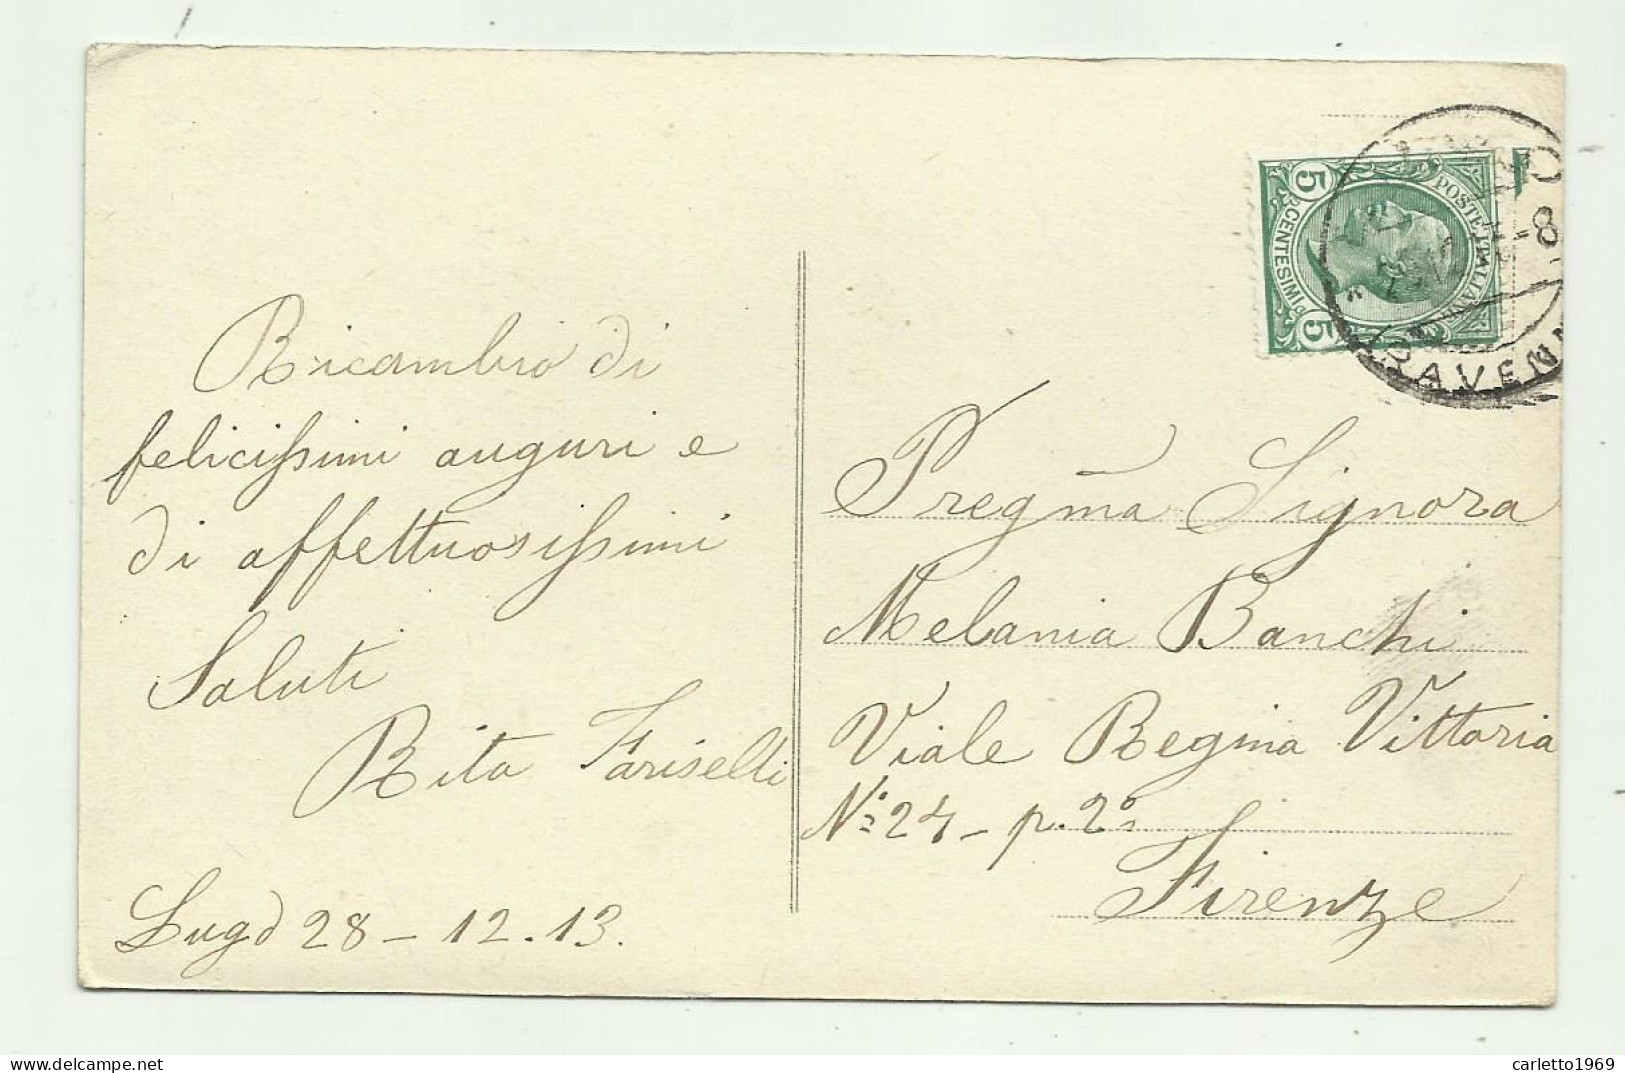 Ricambio di
felicissimi auguri e
di affettuosissimi
Saluti
Rita Fariselli
Lugo 28 - 12. 13.
POSTE ITALIANE
5 CENTESIMI 5
RAVENN
Pregma Signora
Melania Banchi
Viale Regina Vittoria
No 24 - p. 2o
Firenze
carletto1969